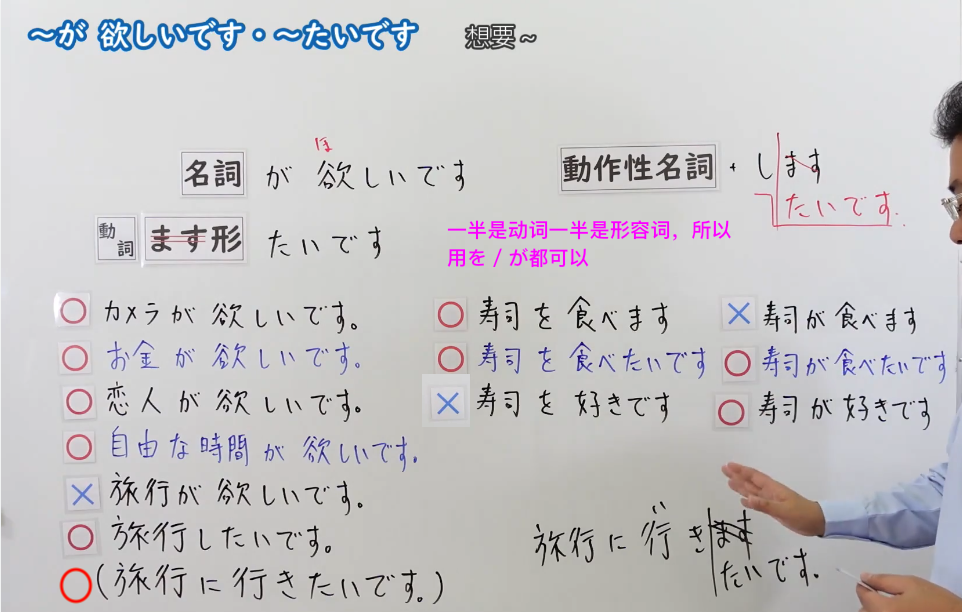 ～が 欲しいです・～たいです
想要～
ほ
名詞 が 欲しいです
動詞 ます形 たいです
動作性名詞 + します
たいです.
一半是动词一半是形容词，所以
用を / が都可以
○ カメラが欲しいです。
○ お金が欲しいです。
○ 恋人が欲しいです。
○ 自由な時間が欲しいです。
× 旅行が欲しいです。
○ 旅行したいです。
○ (旅行に行きたいです。)
○ 寿司を食べます
○ 寿司を食べたいです
× 寿司を好きです
× 寿司が食べます
○ 寿司が食べたいです
○ 寿司が好きです
い
旅行に行きます
たいです.